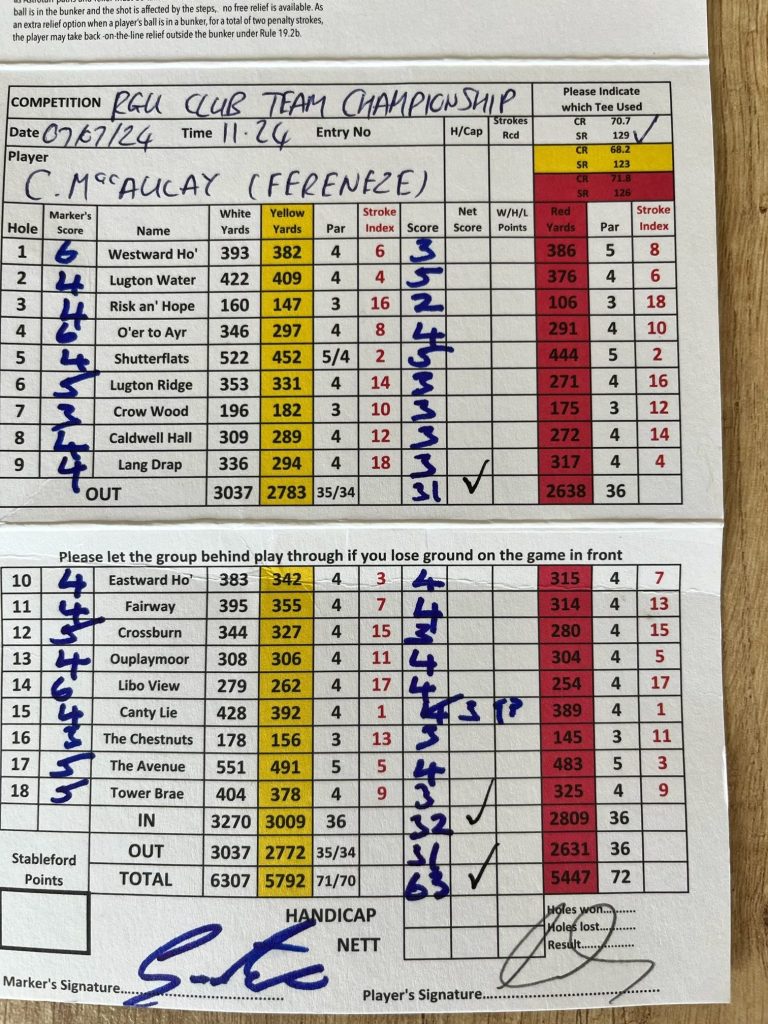 ball is in the bunker and the shot is affected by the steps, no free relief is available. As
an extra relief option when a player's ball is in a bunker, for a total of two penalty strokes,
the player may take back -on-the-line relief outside the bunker under Rule 19.2b.
COMPETITION RGU CLUB TEAM CHAMPIONSHIP Please Indicate which Tee Used
Date 07/07/24 Time 11.24 Entry No H/Cap Strokes Rcd CR 70.7 SR 129 ✓
CR 68.2 SR 123
Player CR 71.8 SR 126
C. McCAULAY (FERENEZE)
Hole Marker's Score Name White Yards Yellow Yards Par Stroke Index Score Net Score W/H/L Points Red Yards Par Stroke Index
1 6 Westward Ho' 393 382 4 6 3 386 5 8
2 4 Lugton Water 422 409 4 4 5 376 4 6
3 4 Risk an' Hope 160 147 3 16 2 106 3 18
4 6 O'er to Ayr 346 297 4 8 4 291 4 10
5 4 Shutterflats 522 452 5/4 2 5 444 5 2
6 5 Lugton Ridge 353 331 4 14 3 271 4 16
7 3 Crow Wood 196 182 3 10 3 175 3 12
8 4 Caldwell Hall 309 289 4 12 3 272 4 14
9 4 Lang Drap 336 294 4 18 3 317 4 4
OUT 3037 2783 35/34 31 ✓ 2638 36
Please let the group behind play through if you lose ground on the game in front
10 4 Eastward Ho' 383 342 4 3 4 315 4 7
11 4 Fairway 395 355 4 7 4 314 4 13
12 5 Crossburn 344 327 4 15 3 280 4 15
13 4 Ouplaymoor 308 306 4 11 4 304 4 5
14 6 Libo View 279 262 4 17 4 254 4 17
15 4 Canty Lie 428 392 4 1 3 389 4 1
16 3 The Chestnuts 178 156 3 13 3 145 3 11
17 5 The Avenue 551 491 5 5 4 483 5 3
18 5 Tower Brae 404 378 4 9 3 325 4 9
IN 3270 3009 36 32 ✓ 2809 36
OUT 3037 2772 35/34 31 2631 36
Stableford Points TOTAL 6307 5792 71/70 63 ✓ 5447 72
HANDICAP Holes won..........
Holes lost..........
NETT Result................
Marker's Signature.............................. Player's Signature..............................